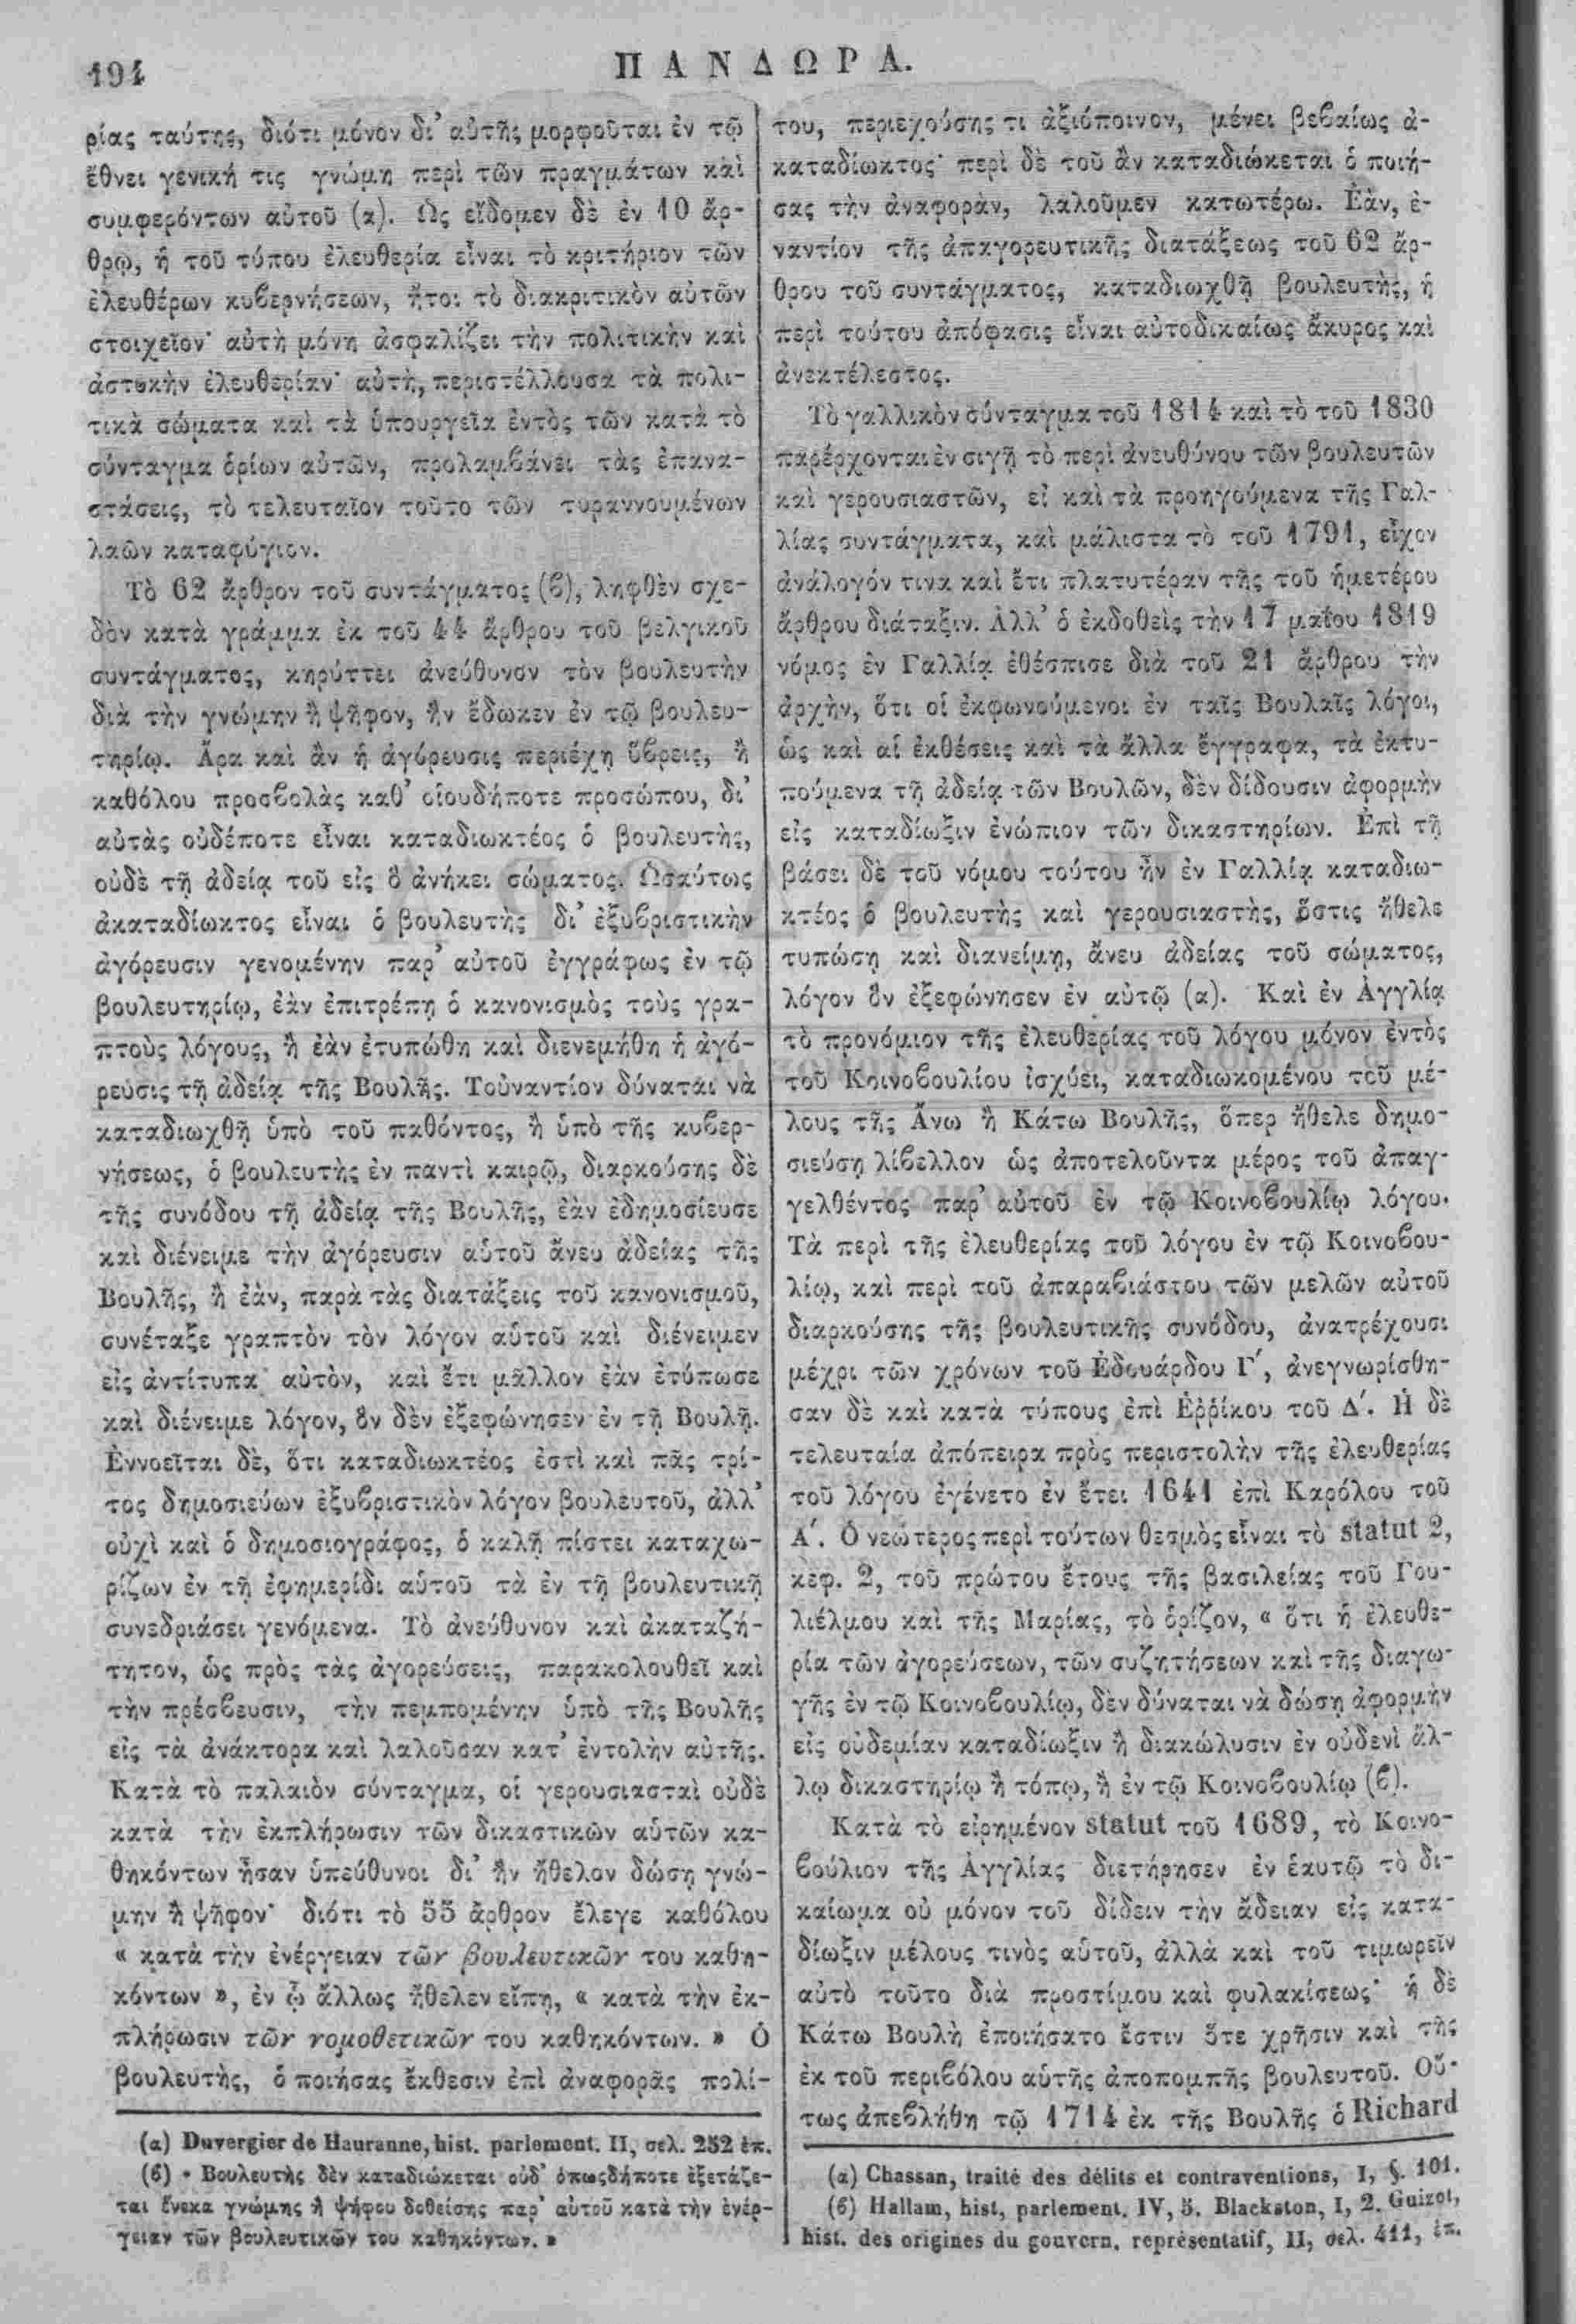 194
ΠΑΝΔΩΡΑ.
ρίας ταύτης, διότι μόνον δι' αὐτῆς μορφοῦται ἐν τῷ
ἔθνει γενική τις γνώμη περὶ τῶν πραγμάτων καὶ
συμφερόντων αὐτοῦ (α). Ὡς εἴδομεν δὲ ἐν 10 ἄρ-
θρῳ, ἡ τοῦ τύπου ἐλευθερία εἶναι τὸ κριτήριον τῶν
ἐλευθέρων κυβερνήσεων, ἤτοι τὸ διακριτικὸν αὐτῶν
στοιχεῖον· αὐτὴ μόνη ἀσφαλίζει τὴν πολιτικὴν καὶ
ἀστικὴν ἐλευθερίαν· αὐτὴ, περιστέλλουσα τὰ πολι-
τικὰ σώματα καὶ τὰ ὑπουργεῖα ἐντὸς τῶν κατὰ τὸ
σύνταγμα ὁρίων αὐτῶν, προλαμβάνει τὰς ἐπανα-
στάσεις, τὸ τελευταῖον τοῦτο τῶν τυραννουμένων
λαῶν καταφύγιον.
Τὸ 62 ἄρθρον τοῦ συντάγματος (β), ληφθὲν σχε-
δὸν κατὰ γράμμα ἐκ τοῦ 44 ἄρθρου τοῦ βελγικοῦ
συντάγματος, κηρύττει ἀνεύθυνον τὸν βουλευτὴν
διὰ τὴν γνώμην ἢ ψῆφον, ἣν ἔδωκεν ἐν τῷ βουλευ-
τηρίῳ. Ἄρα καὶ ἂν ἡ ἀγόρευσις περιέχῃ ὕβρεις, ἢ
καθόλου προσβολὰς καθ' οἱουδήποτε προσώπου, δι'
αὐτὰς οὐδέποτε εἶναι καταδιωκτέος ὁ βουλευτὴς,
οὐδὲ τῇ ἀδείᾳ τοῦ εἰς ὃ ἀνήκει σώματος. Ὡσαύτως
ἀκαταδίωκτος εἶναι ὁ βουλευτὴς δι' ἐξυβριστικὴν
ἀγόρευσιν γενομένην παρ' αὐτοῦ ἐγγράφως ἐν τῷ
βουλευτηρίῳ, ἐὰν ἐπιτρέπῃ ὁ κανονισμὸς τοὺς γρα-
πτοὺς λόγους, ἢ ἐὰν ἐτυπώθη καὶ διενεμήθη ἡ ἀγό-
ρευσις τῇ ἀδείᾳ τῆς Βουλῆς. Τοὐναντίον δύναται νὰ
καταδιωχθῇ ὑπὸ τοῦ παθόντος, ἢ ὑπὸ τῆς κυβερ-
νήσεως, ὁ βουλευτὴς ἐν παντὶ καιρῷ, διαρκούσης δὲ
τῆς συνόδου τῇ ἀδείᾳ τῆς Βουλῆς, ἐὰν ἐδημοσίευσε
καὶ διένειμε τὴν ἀγόρευσιν αὑτοῦ ἄνευ ἀδείας τῆς
Βουλῆς, ἢ ἐὰν, παρὰ τὰς διατάξεις τοῦ κανονισμοῦ,
συνέταξε γραπτὸν τὸν λόγον αὑτοῦ καὶ διένειμεν
εἰς ἀντίτυπα αὐτὸν, καὶ ἔτι μᾶλλον ἐὰν ἐτύπωσε
καὶ διένειμε λόγον, ὃν δὲν ἐξεφώνησεν ἐν τῇ Βουλῇ.
Ἐννοεῖται δὲ, ὅτι καταδιωκτέος ἐστὶ καὶ πᾶς τρί-
τος δημοσιεύων ἐξυβριστικὸν λόγον βουλευτοῦ, ἀλλ'
οὐχὶ καὶ ὁ δημοσιογράφος, ὁ καλῇ πίστει καταχω-
ρίζων ἐν τῇ ἐφημερίδι αὑτοῦ τὰ ἐν τῇ βουλευτικῇ
συνεδριάσει γενόμενα. Τὸ ἀνεύθυνον καὶ ἀκαταζή-
τητον, ὡς πρὸς τὰς ἀγορεύσεις, παρακολουθεῖ καὶ
τὴν πρέσβευσιν, τὴν πεμπομένην ὑπὸ τῆς Βουλῆς
εἰς τὰ ἀνάκτορα καὶ λαλοῦσαν κατ' ἐντολὴν αὐτῆς.
Κατὰ τὸ παλαιὸν σύνταγμα, οἱ γερουσιασταὶ οὐδὲ
κατὰ τὴν ἐκπλήρωσιν τῶν δικαστικῶν αὑτῶν κα-
θηκόντων ἦσαν ὑπεύθυνοι δι' ἣν ἤθελον δώσῃ γνώ-
μην ἢ ψῆφον· διότι τὸ 55 ἄρθρον ἔλεγε καθόλου
« κατὰ τὴν ἐνέργειαν τῶν βουλευτικῶν του καθη-
κόντων », ἐν ᾧ ἄλλως ἤθελεν εἴπῃ, « κατὰ τὴν ἐκ-
πλήρωσιν τῶν νομοθετικῶν του καθηκόντων. » Ὁ
βουλευτὴς, ὁ ποιήσας ἔκθεσιν ἐπὶ ἀναφορᾶς πολί-
(α) Duvergier de Hauranne, hist. parlement. II, σελ. 252 ἑπ.
(β) « Βουλευτὴς δὲν καταδιώκεται οὐδ' ὁπωςδήποτε ἐξετάζε-
ται ἕνεκα γνώμης ἢ ψήφου δοθείσης παρ' αὐτοῦ κατὰ τὴν ἐνέρ-
γειαν τῶν βουλευτικῶν του καθηκόντων. »
του, περιεχούσης τι ἀξιόποινον, μένει βεβαίως ἀ-
καταδίωκτος· περὶ δὲ τοῦ ἂν καταδιώκεται ὁ ποιή-
σας τὴν ἀναφορὰν, λαλοῦμεν κατωτέρω. Ἐὰν, ἐ-
ναντίον τῆς ἀπαγορευτικῆς διατάξεως τοῦ 62 ἄρ-
θρου τοῦ συντάγματος, καταδιωχθῇ βουλευτὴς, ἡ
περὶ τούτου ἀπόφασις εἶναι αὐτοδικαίως ἄκυρος καὶ
ἀνεκτέλεστος.
Τὸ γαλλικὸν σύνταγμα τοῦ 1814 καὶ τὸ τοῦ 1830
παρέρχονται ἐν σιγῇ τὸ περὶ ἀνευθύνου τῶν βουλευτῶν
καὶ γερουσιαστῶν, εἰ καὶ τὰ προηγούμενα τῆς Γαλ-
λίας συντάγματα, καὶ μάλιστα τὸ τοῦ 1791, εἶχον
ἀνάλογόν τινα καὶ ἔτι πλατυτέραν τῆς τοῦ ἡμετέρου
ἄρθρου διάταξιν. Ἀλλ' ὁ ἐκδοθεὶς τὴν 17 μαΐου 1819
νόμος ἐν Γαλλίᾳ ἐθέσπισε διὰ τοῦ 21 ἄρθρου τὴν
ἀρχὴν, ὅτι οἱ ἐκφωνούμενοι ἐν ταῖς Βουλαῖς λόγοι,
ὡς καὶ αἱ ἐκθέσεις καὶ τὰ ἄλλα ἔγγραφα, τὰ ἐκτυ-
πούμενα τῇ ἀδείᾳ τῶν Βουλῶν, δὲν δίδουσιν ἀφορμὴν
εἰς καταδίωξιν ἐνώπιον τῶν δικαστηρίων. Ἐπὶ τῇ
βάσει δὲ τοῦ νόμου τούτου ἦν ἐν Γαλλίᾳ καταδιω-
κτέος ὁ βουλευτὴς καὶ γερουσιαστὴς, ὅστις ἤθελε
τυπώσῃ καὶ διανείμῃ, ἄνευ ἀδείας τοῦ σώματος,
λόγον ὃν ἐξεφώνησεν ἐν αὐτῷ (α). Καὶ ἐν Ἀγγλίᾳ
τὸ προνόμιον τῆς ἐλευθερίας τοῦ λόγου μόνον ἐντὸς
τοῦ Κοινοβουλίου ἰσχύει, καταδιωκομένου τοῦ μέ-
λους τῆς Ἄνω ἢ Κάτω Βουλῆς, ὅπερ ἤθελε δημο-
σιεύσῃ λίβελλον ὡς ἀποτελοῦντα μέρος τοῦ ἀπαγ-
γελθέντος παρ' αὐτοῦ ἐν τῷ Κοινοβουλίῳ λόγου.
Τὰ περὶ τῆς ἐλευθερίας τοῦ λόγου ἐν τῷ Κοινοβου-
λίῳ, καὶ περὶ τοῦ ἀπαραβιάστου τῶν μελῶν αὐτοῦ
διαρκούσης τῆς βουλευτικῆς συνόδου, ἀνατρέχουσι
μέχρι τῶν χρόνων τοῦ Ἐδουάρδου Γ', ἀνεγνωρίσθη-
σαν δὲ καὶ κατὰ τύπους ἐπὶ Ἑῤῥίκου τοῦ Δ'. Ἡ δὲ
τελευταία ἀπόπειρα πρὸς περιστολὴν τῆς ἐλευθερίας
τοῦ λόγου ἐγένετο ἐν ἔτει 1641 ἐπὶ Καρόλου τοῦ
Α'. Ὁ νεώτερος περὶ τούτων θεσμὸς εἶναι τὸ statut 2,
κεφ. 2, τοῦ πρώτου ἔτους τῆς βασιλείας τοῦ Γου-
λιέλμου καὶ τῆς Μαρίας, τὸ ὁρίζον, « ὅτι ἡ ἐλευθε-
ρία τῶν ἀγορεύσεων, τῶν συζητήσεων καὶ τῆς διαγω-
γῆς ἐν τῷ Κοινοβουλίῳ, δὲν δύναται νὰ δώσῃ ἀφορμὴν
εἰς οὐδεμίαν καταδίωξιν ἢ διακώλυσιν ἐν οὐδενὶ ἄλ-
λῳ δικαστηρίῳ ἢ τόπῳ, ἢ ἐν τῷ Κοινοβουλίῳ (β).
Κατὰ τὸ εἰρημένον statut τοῦ 1689, τὸ Κοινο-
βούλιον τῆς Ἀγγλίας διετήρησεν ἐν ἑαυτῷ τὸ δι-
καίωμα οὐ μόνον τοῦ δίδειν τὴν ἄδειαν εἰς κατα-
δίωξιν μέλους τινὸς αὑτοῦ, ἀλλὰ καὶ τοῦ τιμωρεῖν
αὐτὸ τοῦτο διὰ προστίμου καὶ φυλακίσεως· ἡ δὲ
Κάτω Βουλὴ ἐποιήσατο ἔστιν ὅτε χρῆσιν καὶ τῆς
ἐκ τοῦ περιβόλου αὑτῆς ἀποπομπῆς βουλευτοῦ. Οὕ-
τως ἀπεβλήθη τῷ 1714 ἐκ τῆς Βουλῆς ὁ Richard
(α) Chassan, traité des délits et contraventions, I, §. 101.
(β) Hallam, hist, parlement. IV, 5. Blackston, I, 2. Guizot,
hist. des origines du gouvern. représentatif, II, σελ. 411, ἑπ.